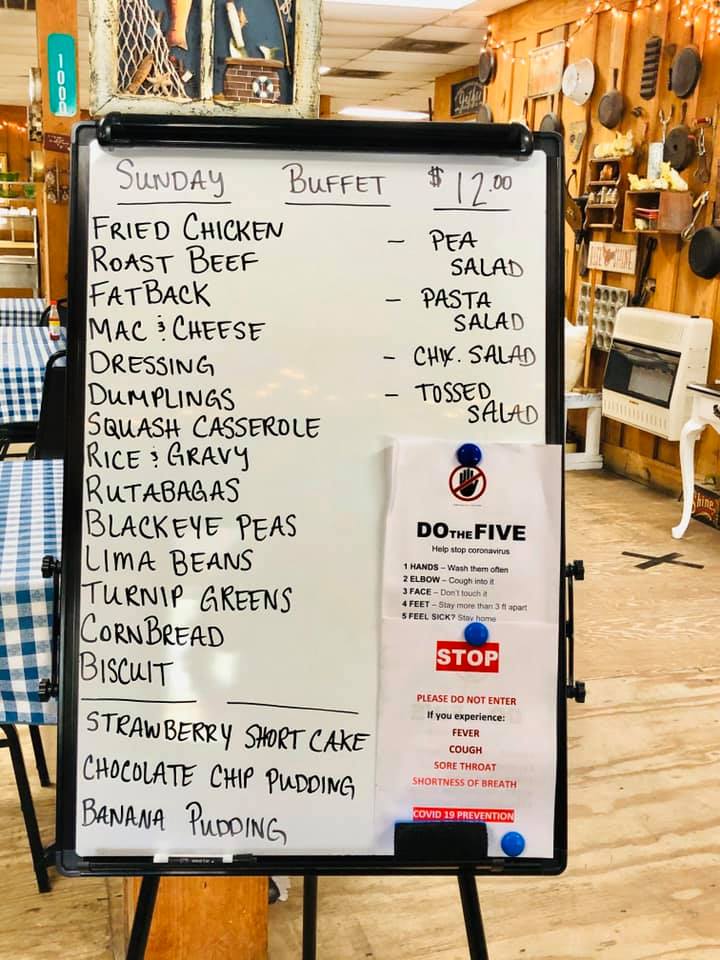 1000
SUNDAY BUFFET $12.00
FRIED CHICKEN
ROAST BEEF
FATBACK
MAC & CHEESE
DRESSING
DUMPLINGS
SQUASH CASSEROLE
RICE & GRAVY
RUTABAGAS
BLACKEYE PEAS
LIMA BEANS
TURNIP GREENS
CORNBREAD
BISCUIT
STRAWBERRY SHORT CAKE
CHOCOLATE CHIP PUDDING
BANANA PUDDING
- PEA
SALAD
- PASTA
SALAD
- CHIX. SALAD
- TOSSED
SALAD
DO THE FIVE
Help stop coronavirus
1 HANDS – Wash them often
2 ELBOW – Cough into it
3 FACE – Don't touch it
4 FEET – Stay more than 3 ft apart
5 FEEL SICK? Stay home
STOP
PLEASE DO NOT ENTER
If you experience:
FEVER
COUGH
SORE THROAT
SHORTNESS OF BREATH
COVID 19 PREVENTION